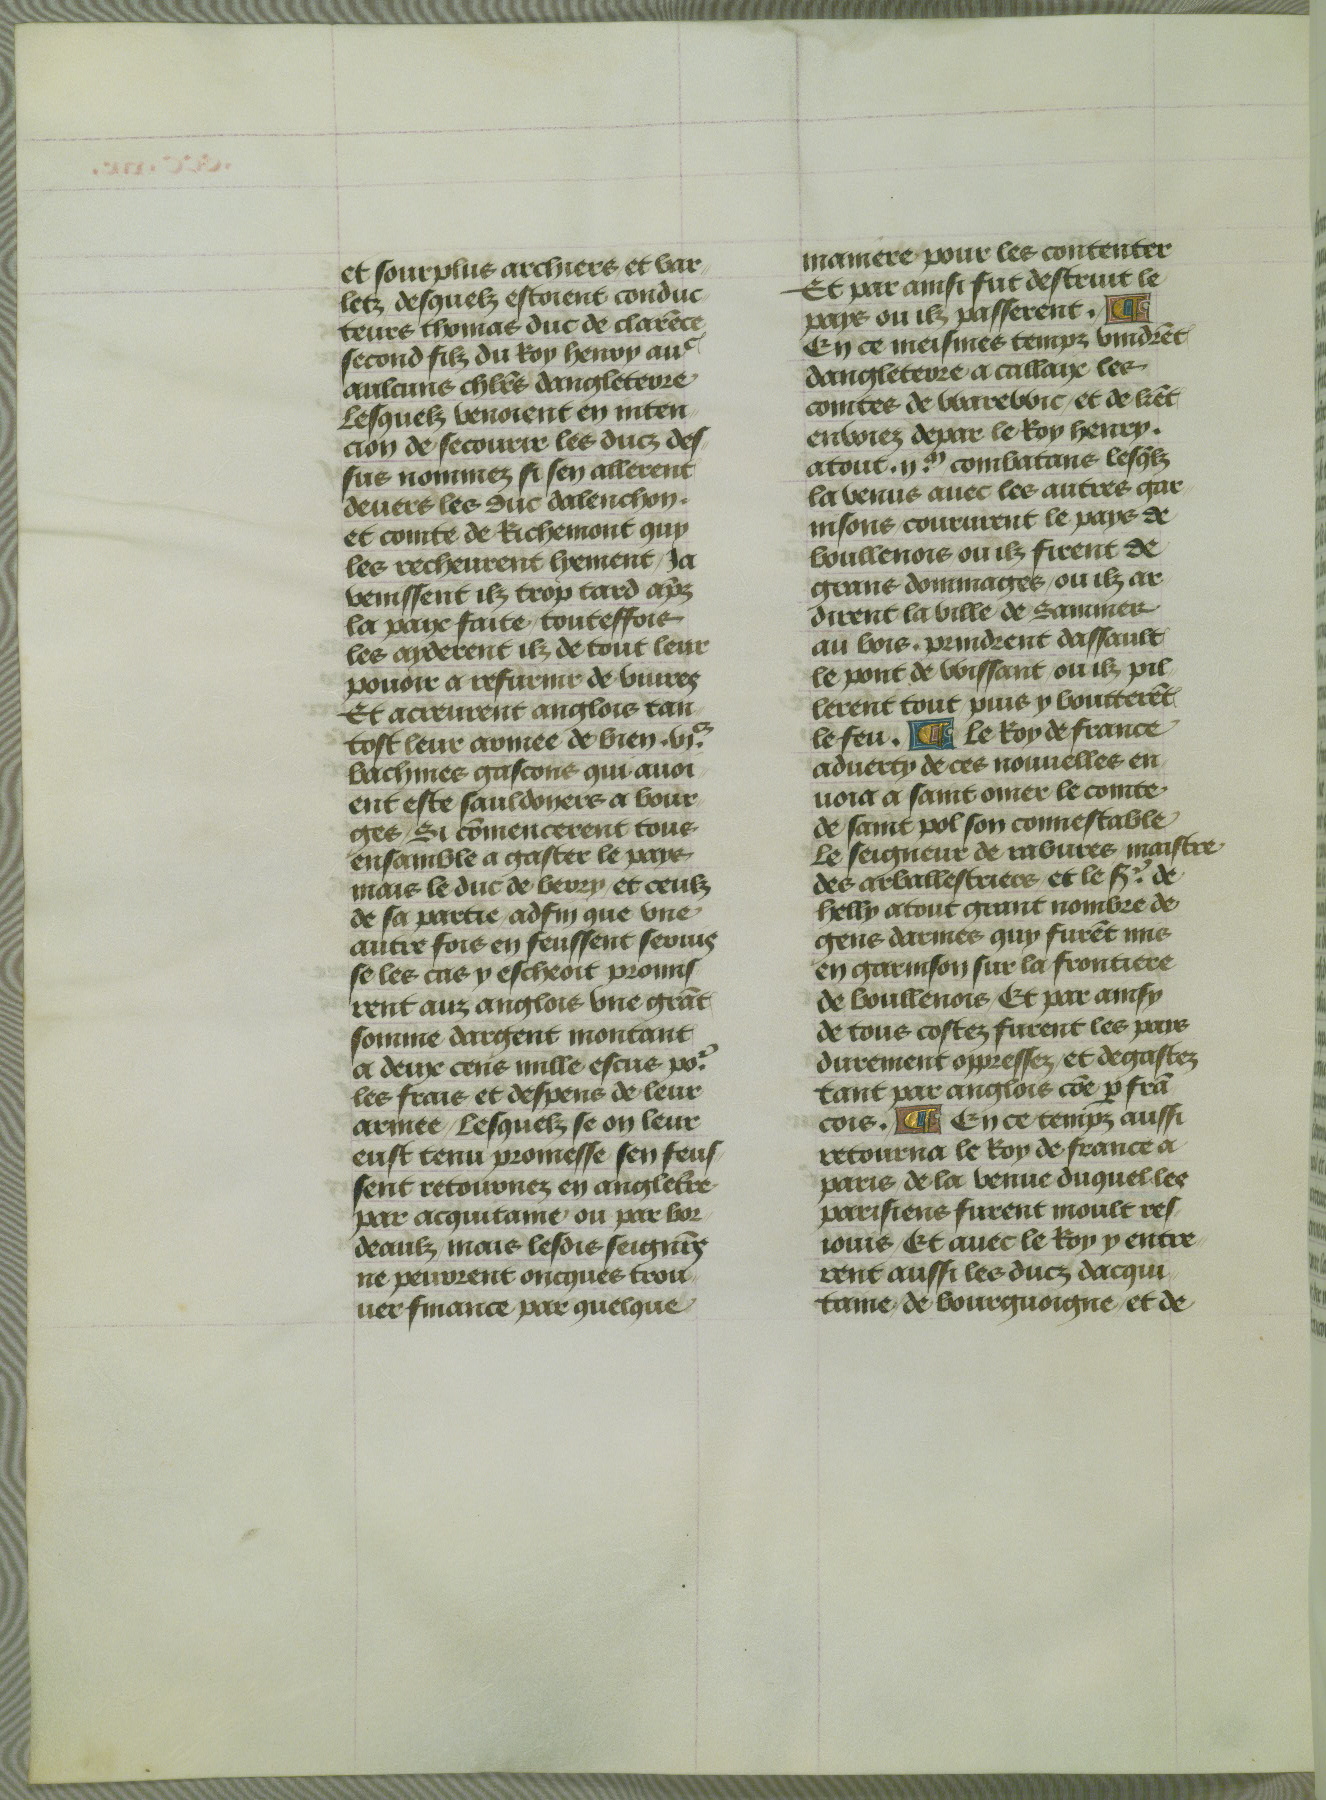 et sourplus archiers et var
letz desquelz estoient conduc
teurs thomas duc de clarēce
second filz du Roy henry auͨ
aulcuns chl̄rs dangleterre
Lesquelz venoient en inten
cion de secourir les ducz des
sus nommez si sen allerent
deuers les duc dalenchon.
et comte de Richemont quy
les recheurent lyement / Ja
venissent ilz trop tard apz̄
la paix faite / touteffois
les ayderent ilz de tout leur
pouoir a refurnir de viures
Et acreurent anglois tan
tost leur armee de bien .vjͨ.
bachines gascons qui auoi
ent este sauldoyers a bour
ges / Si cōmencerent tous
ensamble a gaster le pays
mais le duc de berry / et ceulz
de sa partie / adfin que vne
autre fois en feussent seruis
se les cas y escheoit promis
rent auz anglois vne grāt
somme dargent montant
a deux cens mille escus poͬ
les frais et despens de leur
armee / Lesquelz se on leur
eust tenu promesse sen feus
sent retournez en angletr̄e
par acquitaine ou par bor
deaulz mais lesdis seignr̄s
ne peurent oncques trou
uer finance par quelque
maniere pour les contenter
Et par ainsi fut destruit le
pays ou ilz passerent . ¶
En ce meismes tempz vindrēt
dangleterre a callaix les
comtes de warewic / et de kēt
enuoiez depar le Roy henry .
atout .ijͫ. combatans lesq̄lz
la venus auec les autres gar
nisons coururent le pays de
boullenois ou ilz firent de
grans dommages / ou ilz ar
dirent la ville de Sammer
au bois . prindrent dassault
le pont de wissant ou ilz pil
lerent tout puis y boutterēt
le feu . ¶ Le Roy de france
aduerty de ces nouuelles en
uoia a saint omer le comte
de saint pol son connestable
Le seigneur de rabures maistre
des arballestriers et le sͬ. de
helly atout grant nombre de
gens darmes quy furēt mis
en garnison sur la frontiere
de boullenois / Et par ainsy
de tous costez furent les pays
durement oppressez / et degastez
tant par anglois cōe ꝑ frā
cois . ¶ En ce tempz aussi
retourna le Roy de france a
paris de la venue duquel les
parisiens furent moult res
iouis / Et auec le Roy y entre
rent aussi les ducz dacqui
taine / de bourguoigne / et de